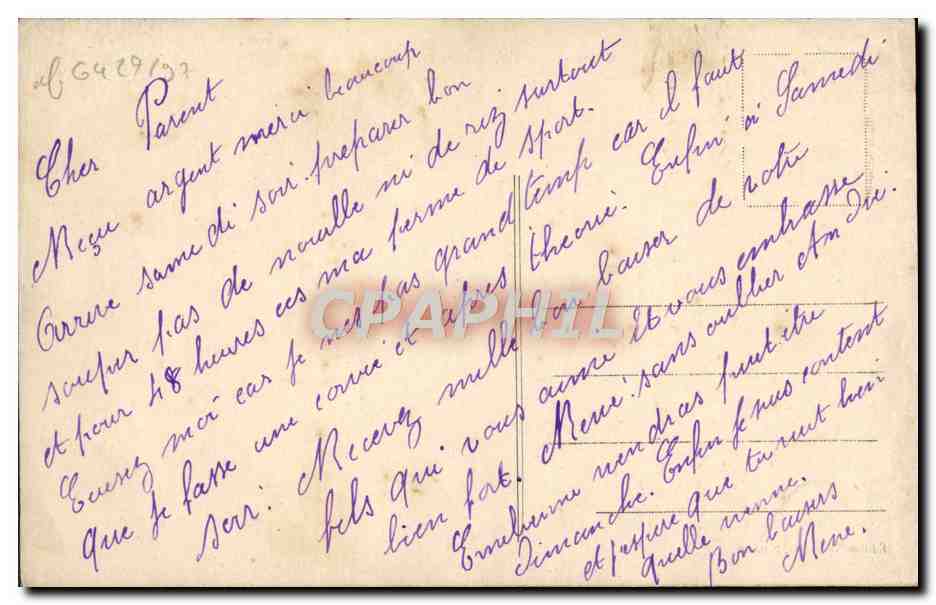 ref G429/97
Cher Parent
Reçu argent merci beaucoup
Arrive samedi soir preparer bon
souper pas de nouille ni de riz surtout
et pour 48 heures ces ma ferme de sport.
Excusez moi car je nes pas grand temp car il faut
que je fasse une corvé et apres theorie. Enfin à Samedi
soir. Recevez mille bon baiser de votre
fils qui vous aime et vous embrasse
bien fort. René. sans oublier
Emelienne viendras peut etre
Dimanche. Enfin Je suis content
et j'espere que tu veut bien
quelle vienne.
Bon baisers
René.
CPAPHIL